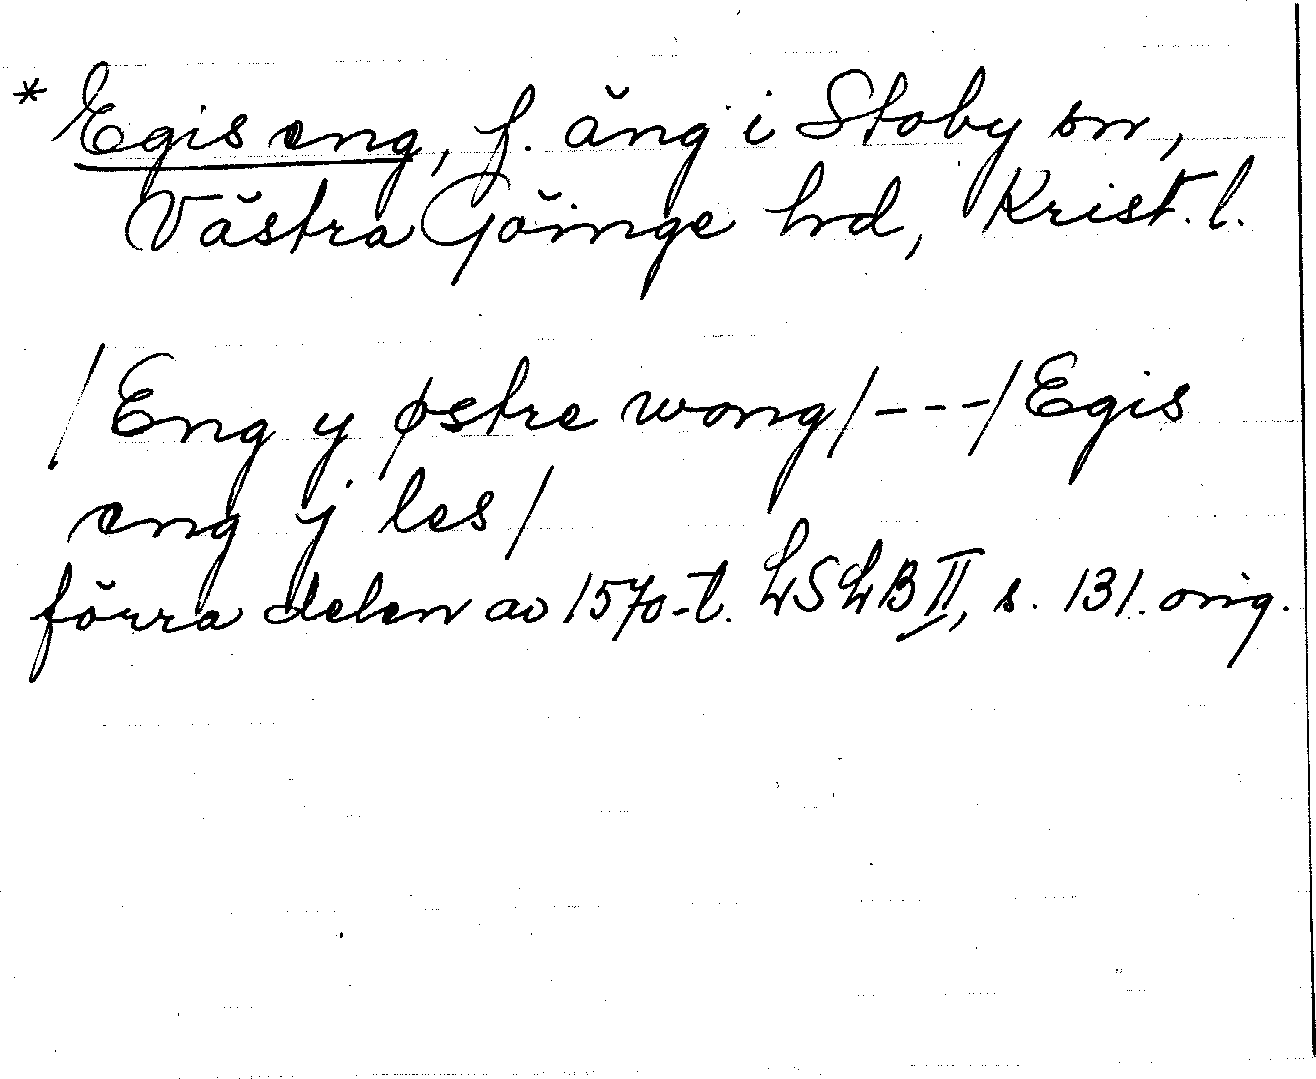 * Egis eng, f. äng i Stoby sn,
Västra Göinge hd, Krist. l.
/Eng y østre wong/---/Egis
eng j les/
förra delen av 1570-t. LSLB II, s. 131. orig.